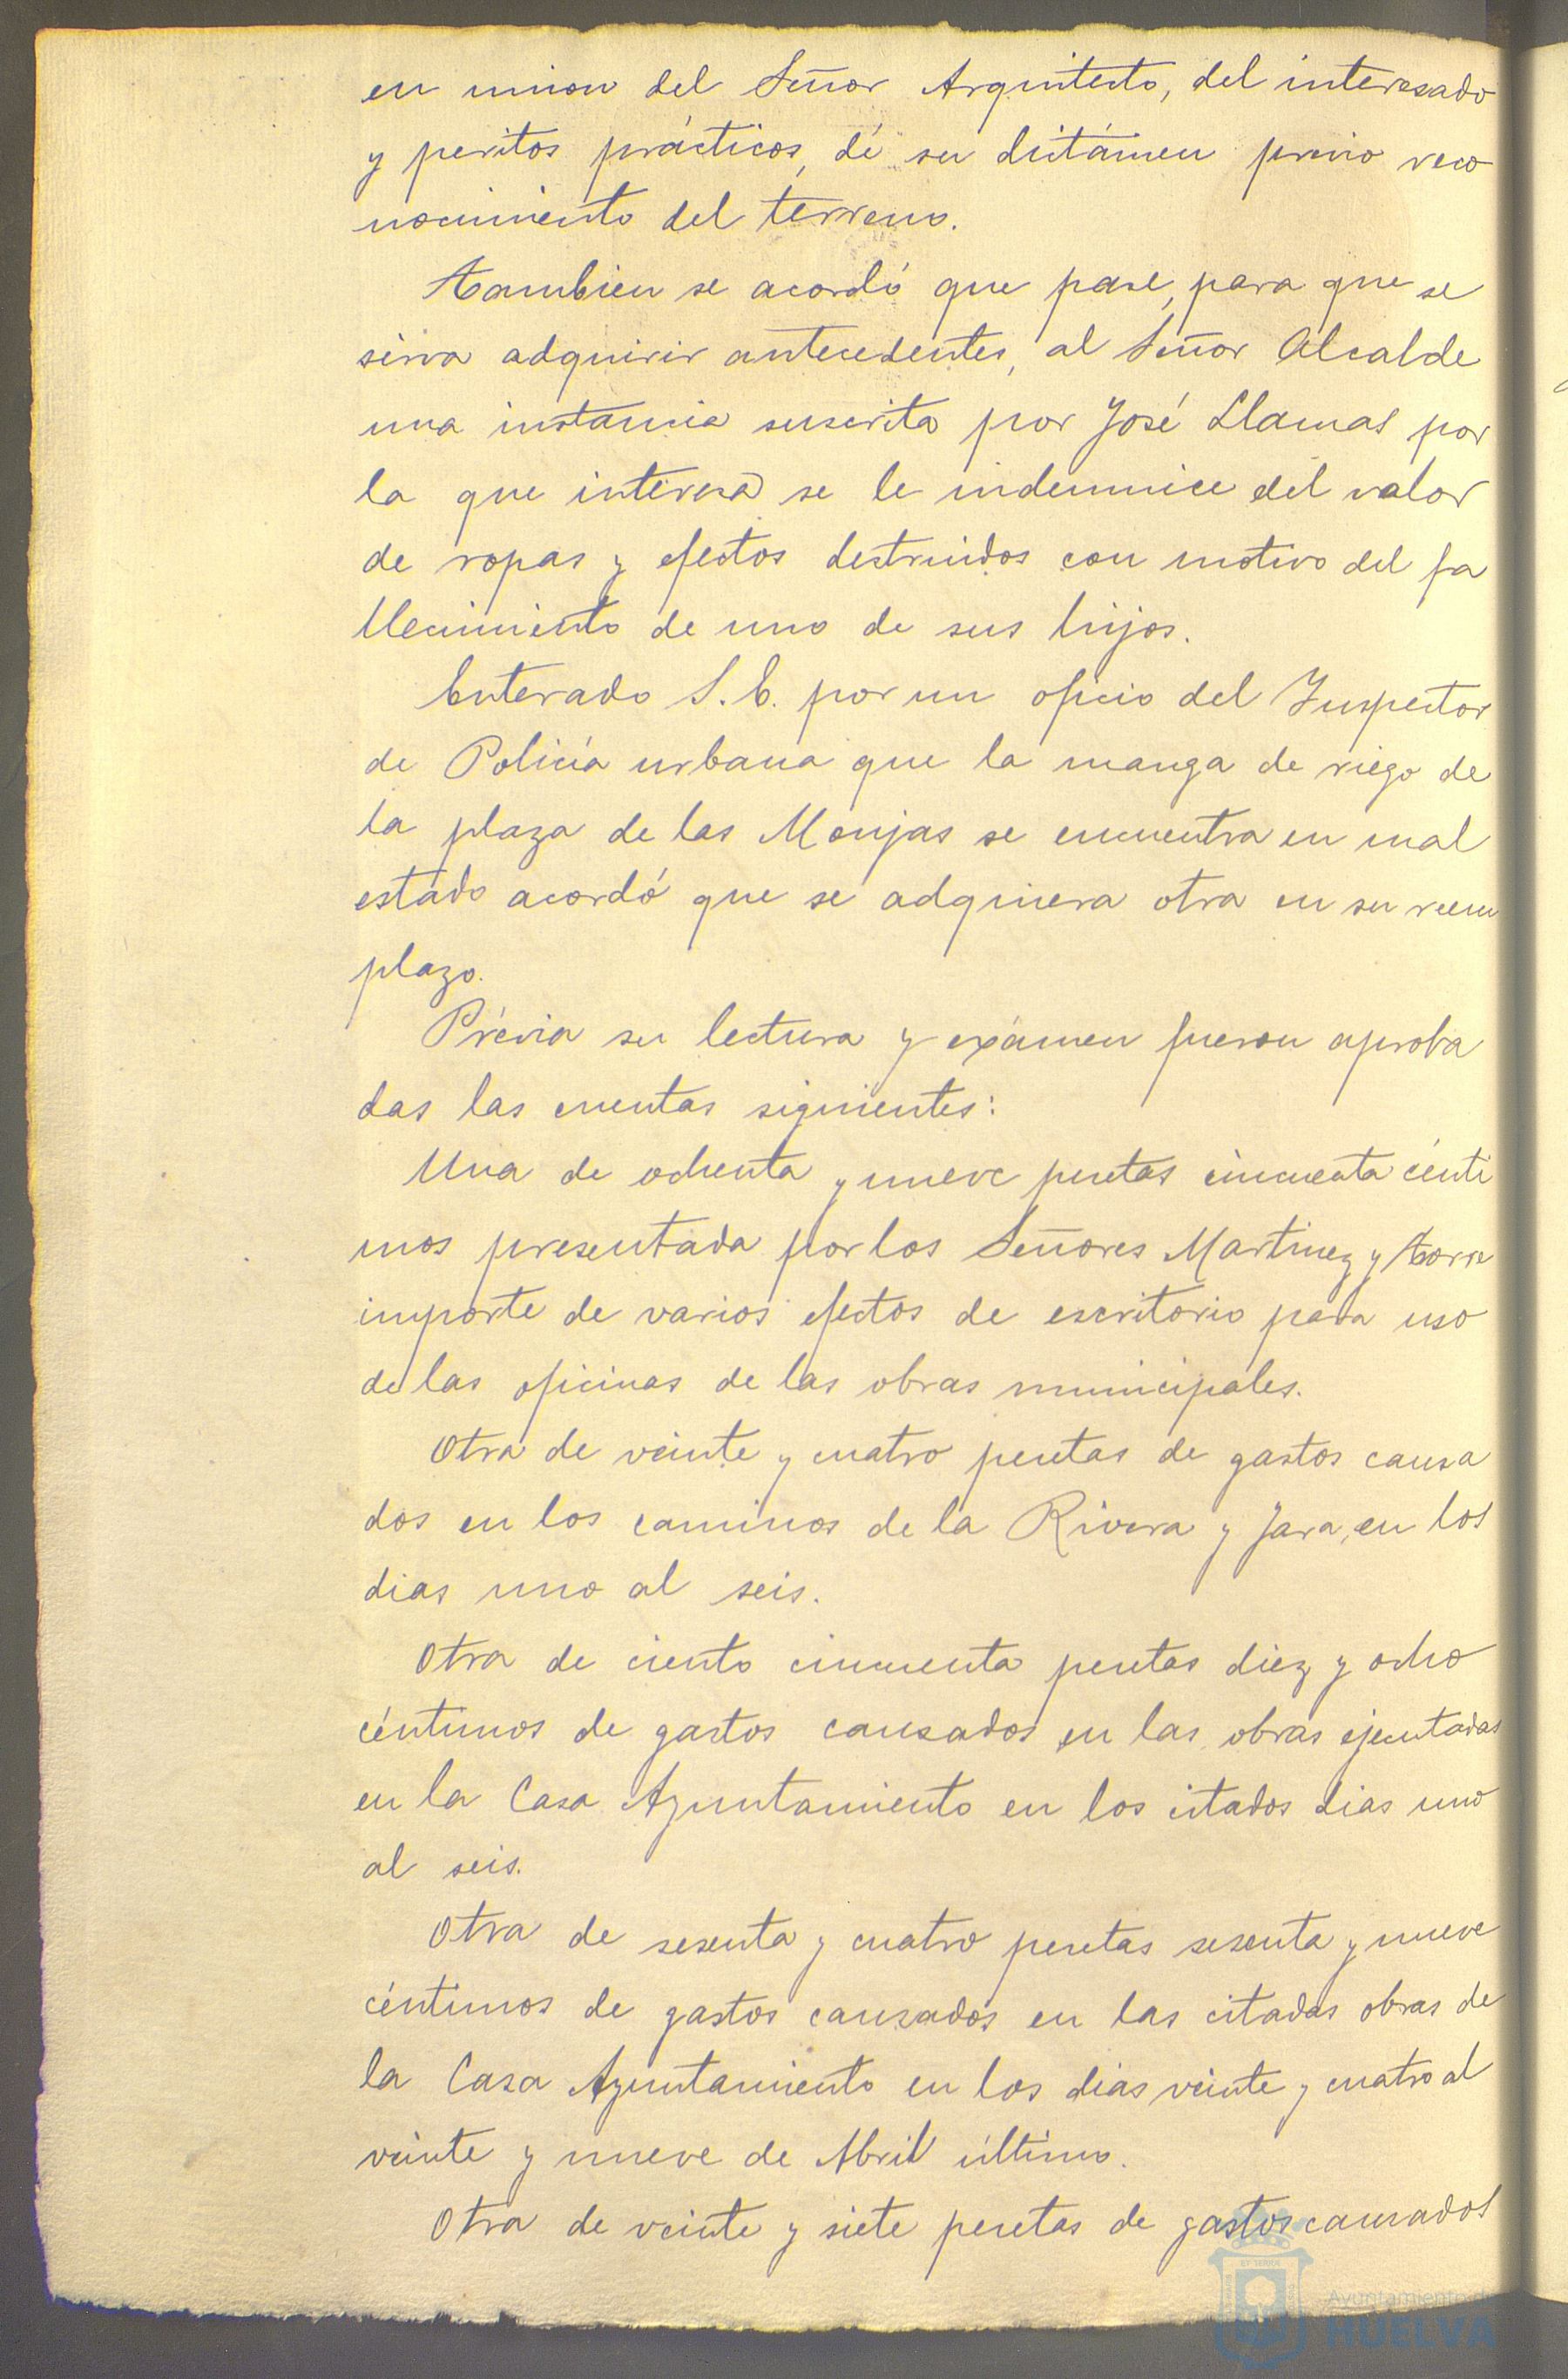 en union del Señor Arquitecto, del interesado
y peritos prácticos, dé su dictámen previo reco
nocimiento del terreno.
Tambien se acordó que pase, para que se
sirva adquirir antecedentes, al Señor Alcalde
una instancia suscrita por José Llamas por
la que interesa se le indemnice del valor
de ropas y efectos destruidos con motivo del fa
llecimiento de uno de sus hijos.
Enterado S. E. por un oficio del Inspector
de Policía urbana que la manga de riego de
la plaza de las Monjas se encuentra en mal
estado acordó que se adquiera otra en su reem
plazo.
Prévia su lectura y exámen fueron aproba
das las cuentas siguientes:
Una de ochenta y nueve pesetas cincuenta cénti
mos presentada por los Señores Martinez y Torre
importe de varios efectos de escritorio para uso
de las oficinas de las obras municipales.
Otra de veinte y cuatro pesetas de gastos causa
dos en los caminos de la Rivera y Jara, en los
dias uno al seis.
Otra de ciento cincuenta pesetas diez y ocho
céntimos de gastos causados en las obras ejecutadas
en la Casa Ayuntamiento en los citados dias uno
al seis.
Otra de sesenta y cuatro pesetas sesenta y nueve
céntimos de gastos causados en las citadas obras de
la Casa Ayuntamiento en los dias veinte y cuatro al
veinte y nueve de Abril último.
Otra de veinte y siete pesetas de gastos causados
Ayuntamiento de
HUELVA